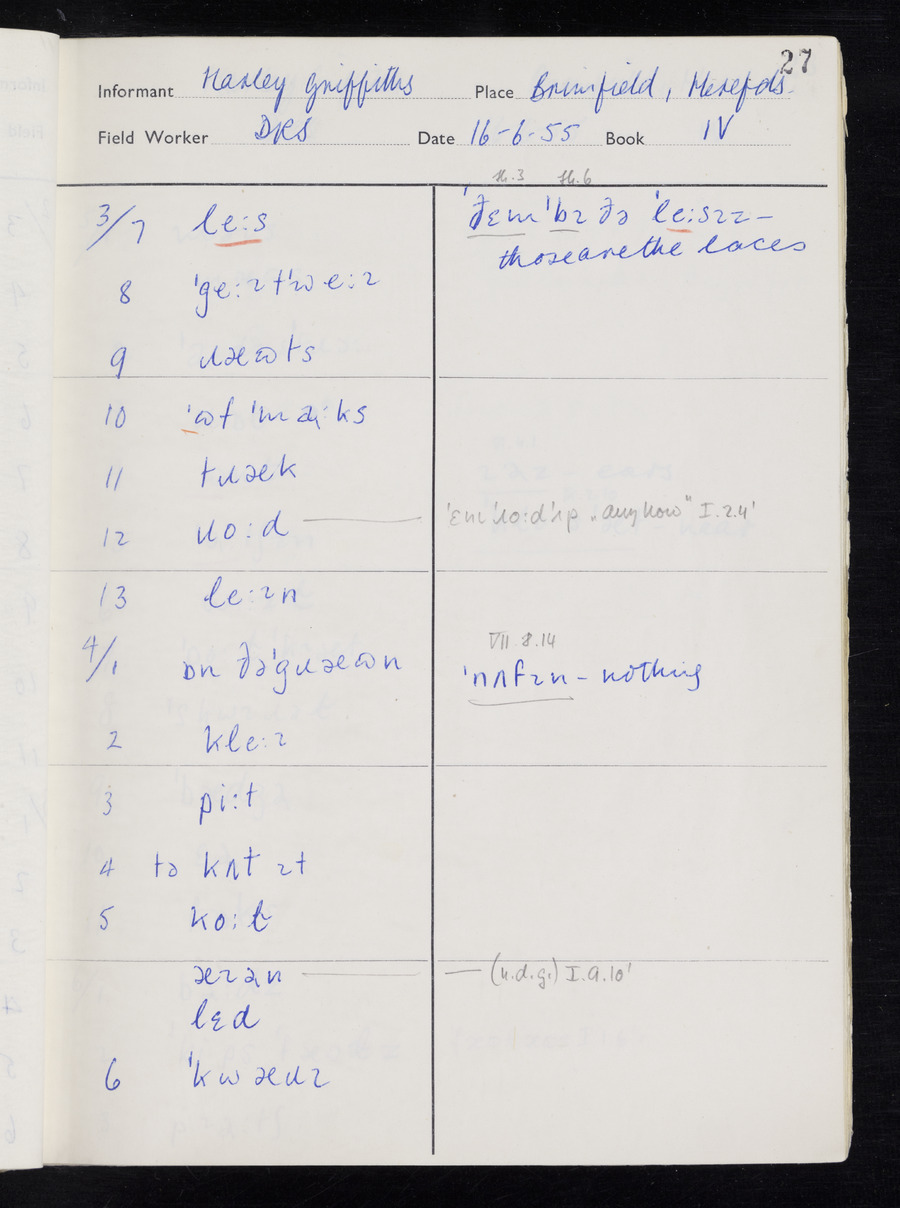 27
Informant Harley Griffiths Place Brimfield, Herefords.
Field Worker DRS Date 16-6-55 Book IV
3/7 le:s
'ðɛm 'bɪ ðə 'le:sɪz –
those are the laces
8 'ge:ɪtʼɷe:ɪ
9 ɹæɷts
10 'ɷf 'mạɪ:ks
11 tɹæk
12 ɹo:d
"anyhow" I.2.4'
13 le:ɪn
VII 8.14
4/1 ɒn ðə'gɹæɷn 'nʌfɪn – nothing
2 kle:ɪ
3 pi:t
4 tə kʌt ɪt
5 ko:ɫ
(n.d.g.) I.9.10'
lɛd
6 'kwæɹɪ